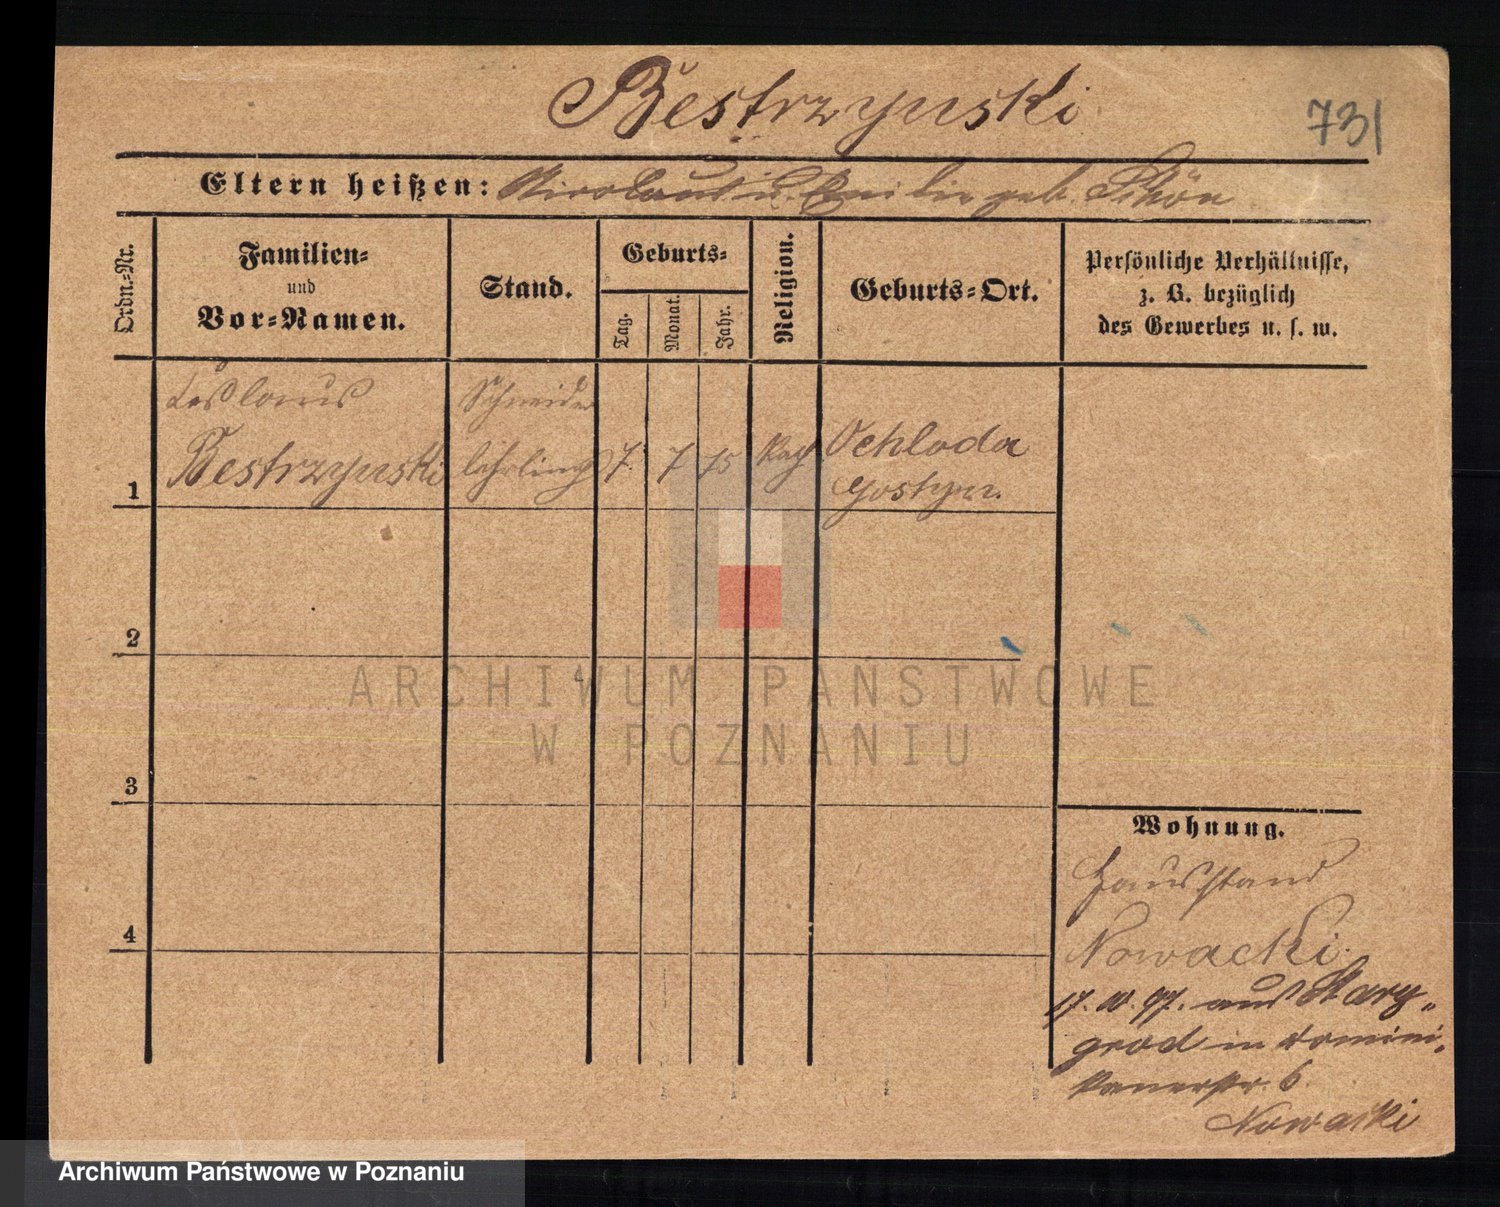 Bestrzynski
731
Eltern heißen: Nicolaus u. Emilie geb. Schön
Ordn.-Nr.
Familien-
und
Vor-Namen.
Stand.
Geburts-
Tag.
Monat.
Jahr.
Religion.
Geburts-Ort.
Persönliche Verhältnisse,
z. B. bezüglich
des Gewerbes u. s. w.
Schneider
1 Bestrzynski lehrling 7. 7 75 Kath Ochloda
Gostyn.
2
3
4
Wohnung.
Hausstand
Nowacki.
17. 10. 97. aus Stary-
grod in Domini-
kanerstr. 6
Nowacki
ARCHIWUM PAŃSTWOWE
W POZNANIU
Archiwum Państwowe w Poznaniu